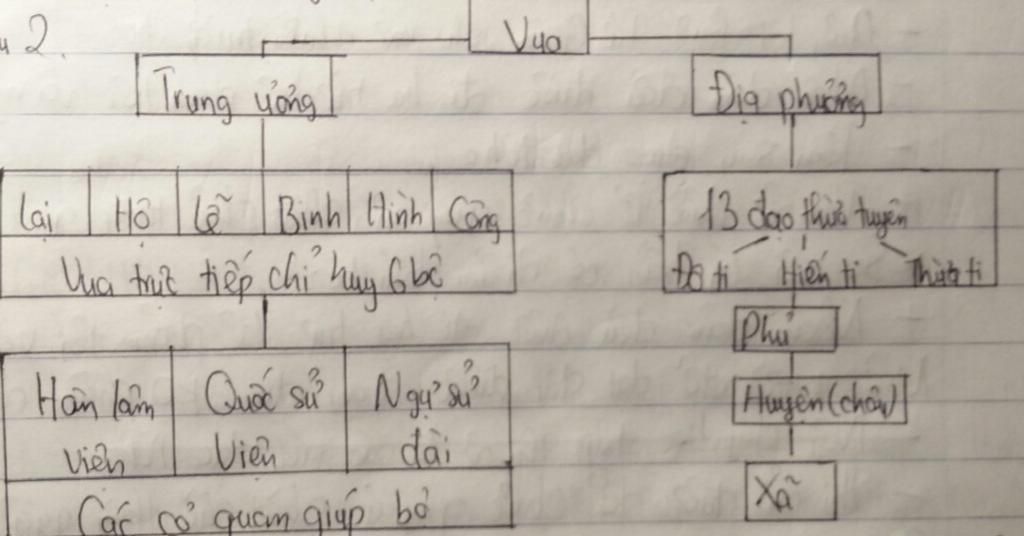 2.
Vua
Trung ương
Địa phương
Lại Hộ Lễ Binh Hình Công
Vua trực tiếp chỉ huy 6 bộ
13 đạo thừa tuyên
Đô ti Hiến ti Thừa ti
Phủ
Huyện (châu)
Xã
Hàn lâm viện
Quốc sử viện
Ngự sử đài
Các cơ quan giúp bộ